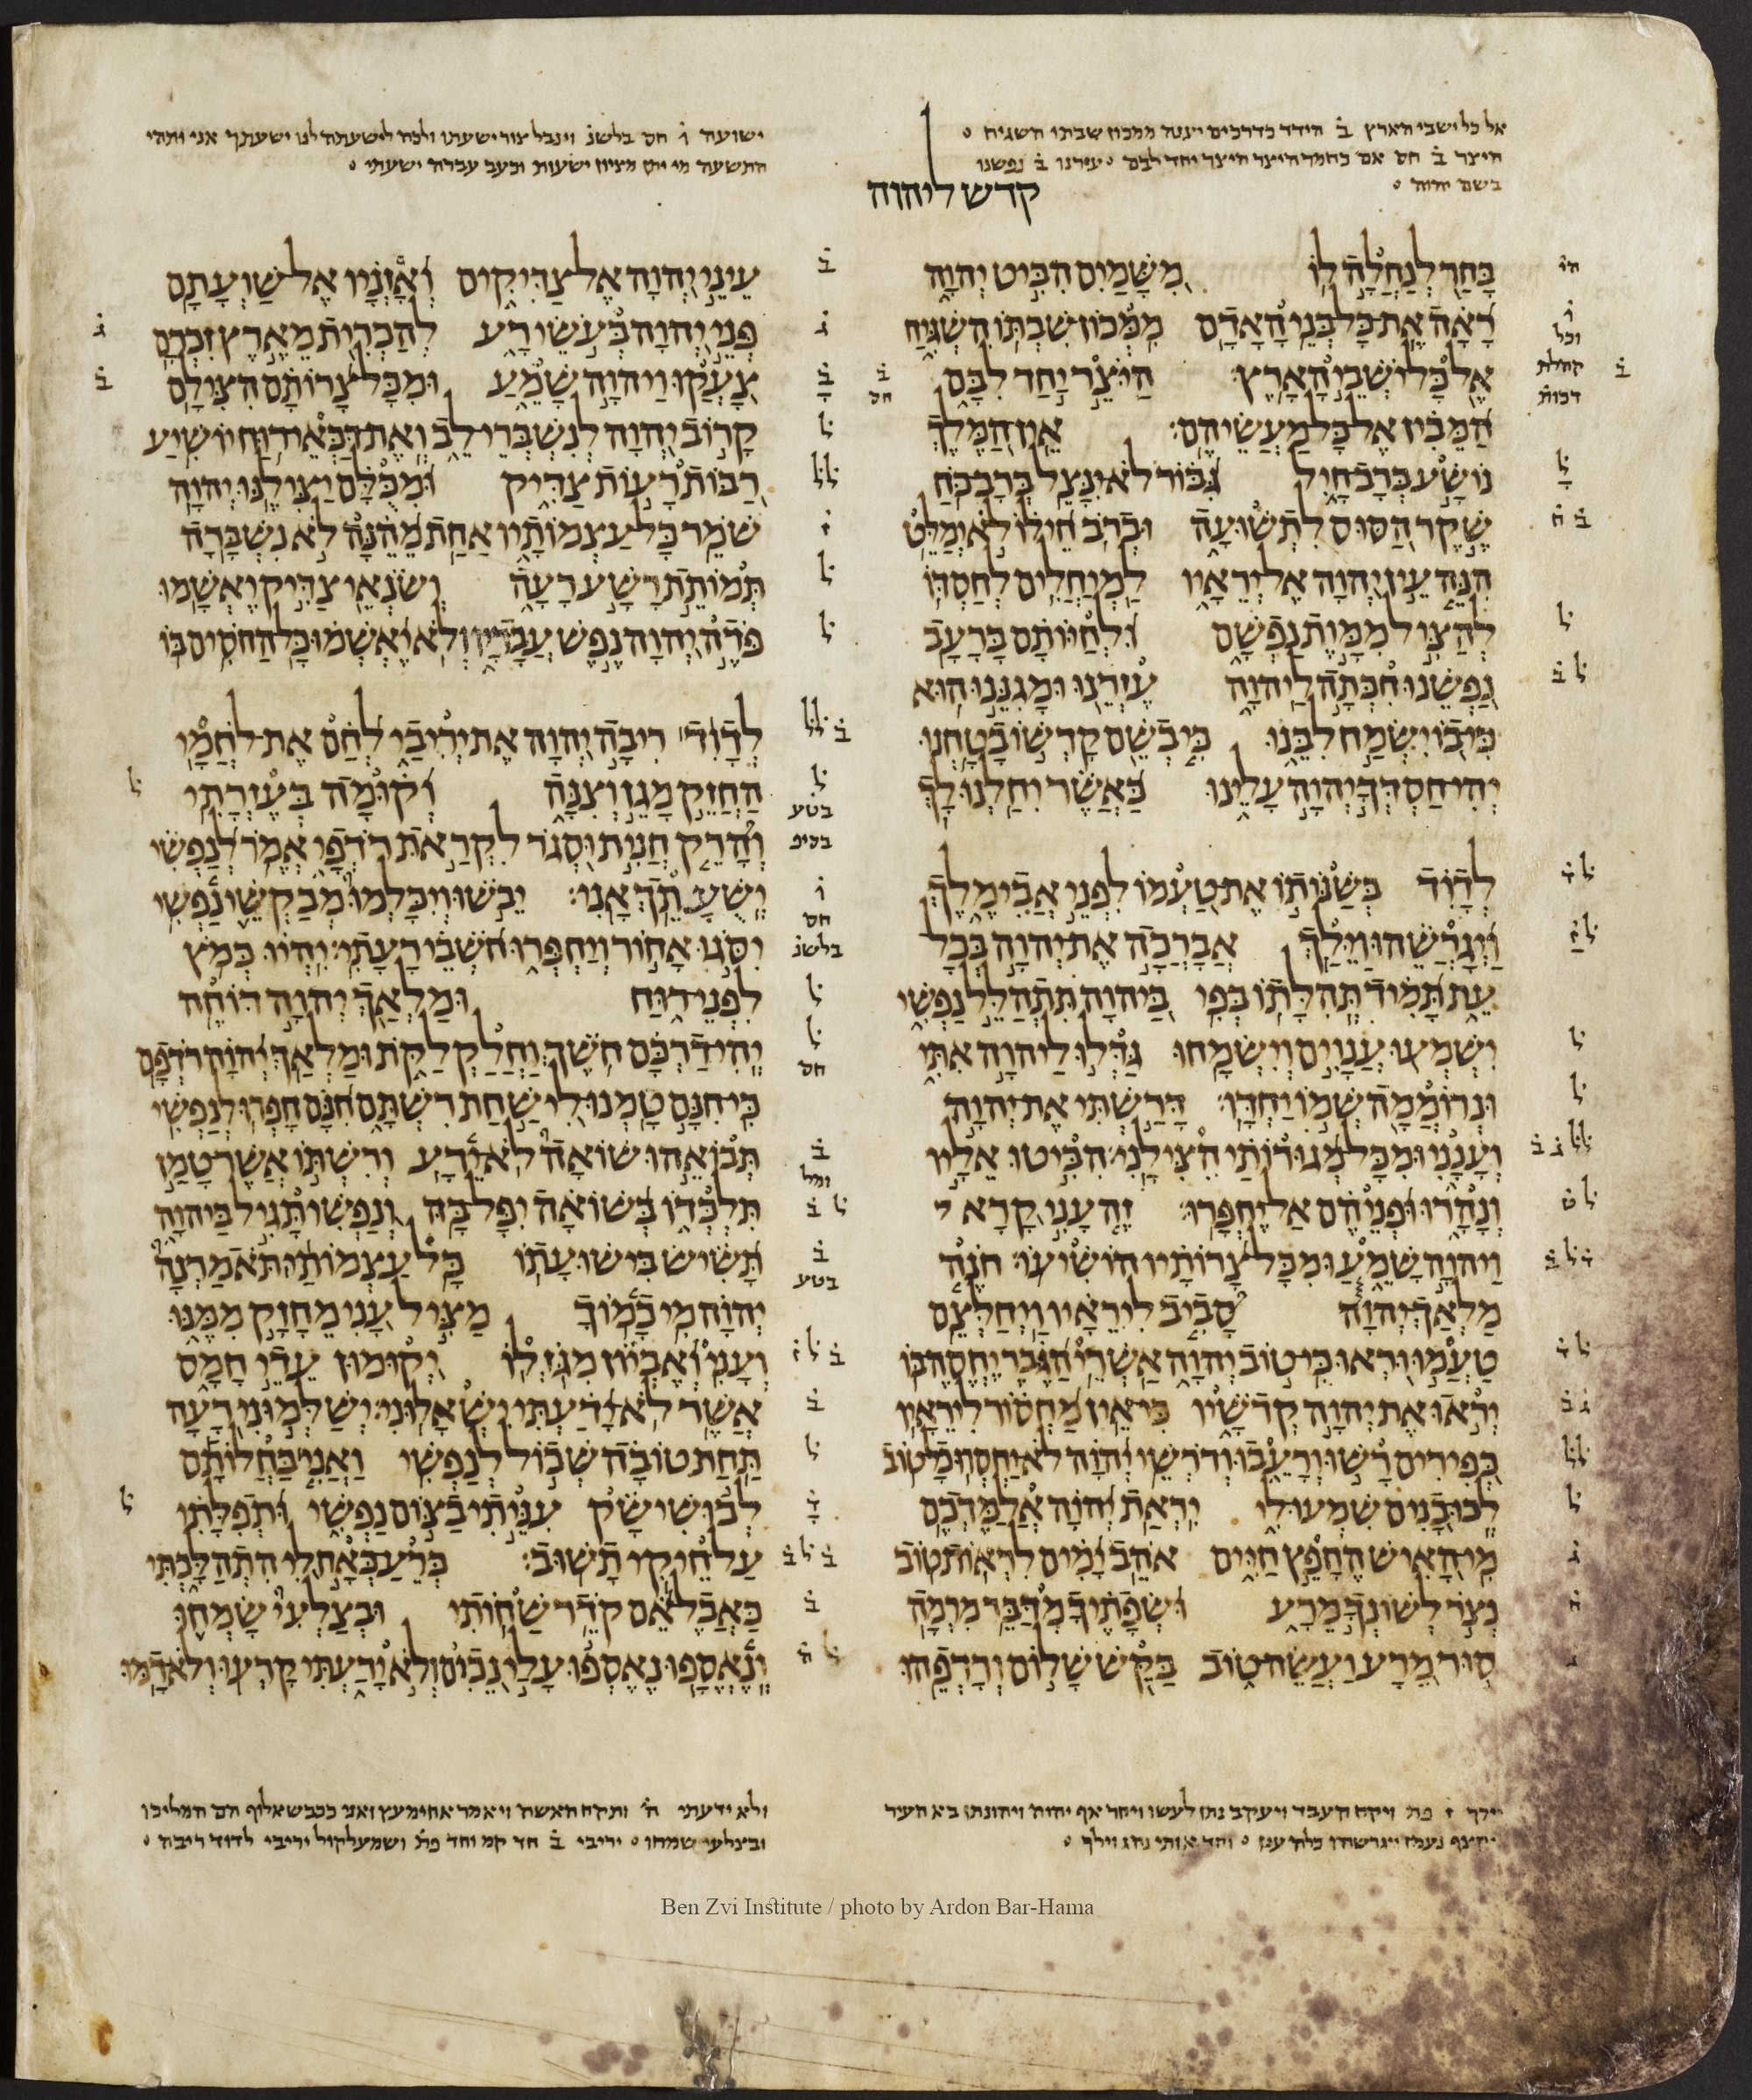 אל כל ישבי הארץ ב̇ הידד כדרכים יענה ממכון שבתו השגיח ◦
היצר ב̇ חס אם כחמר היצר היצר יחד לבם ◦ עזרנו ב̇ נפשנו
בשם יהוה ◦
קדש ליהוה
בָּחַר לְנַחֲלָה לוֹ מִשָּׁמַיִם הִבִּיט יְהוָה
רָאָה אֶת כָּל בְּנֵי הָאָדָם מִמְּכוֹן שִׁבְתּוֹ הִשְׁגִּיחַ
אֶל כָּל יֹשְׁבֵי הָאָרֶץ׃ הַיֹּצֵר יַחַד לִבָּם
הַמֵּבִין אֶל כָּל מַעֲשֵׂיהֶם׃ אֵין הַמֶּלֶךְ
נוֹשָׁע בְּרָב חָיִל גִּבּוֹר לֹא יִנָּצֵל בְּרָב כֹּחַ
שֶׁקֶר הַסּוּס לִתְשׁוּעָה וּבְרֹב חֵילוֹ לֹא יְמַלֵּט
הִנֵּה עֵין יְהוָה אֶל יְרֵאָיו לַמְיַחֲלִים לְחַסְדּוֹ
לְהַצִּיל מִמָּוֶת נַפְשָׁם וּלְחַיּוֹתָם בָּרָעָב
נַפְשֵׁנוּ חִכְּתָה לַיהוָה עֶזְרֵנוּ וּמָגִנֵּנוּ הוּא
כִּי בוֹ יִשְׂמַח לִבֵּנוּ כִּי בְשֵׁם קָדְשׁוֹ בָטָחְנוּ
יְהִי חַסְדְּךָ יְהוָה עָלֵינוּ כַּאֲשֶׁר יִחַלְנוּ לָךְ
לְדָוִד בְּשַׁנּוֹתוֹ אֶת טַעְמוֹ לִפְנֵי אֲבִימֶלֶךְ
וַיְגָרְשֵׁהוּ וַיֵּלַךְ אֲבָרֲכָה אֶת יְהוָה בְּכָל
עֵת תָּמִיד תְּהִלָּתוֹ בְּפִי בַּיהוָה תִּתְהַלֵּל נַפְשִׁי
יִשְׁמְעוּ עֲנָוִים וְיִשְׂמָחוּ גַּדְּלוּ לַיהוָה אִתִּי
וּנְרוֹמְמָה שְׁמוֹ יַחְדָּו׃ דָּרַשְׁתִּי אֶת יְהוָה
וְעָנָנִי וּמִכָּל מְגוּרוֹתַי הִצִּילָנִי׃ הִבִּיטוּ אֵלָיו
וְנָהָרוּ וּפְנֵיהֶם אַל יֶחְפָּרוּ׃ זֶה עָנִי קָרָא
וַיהוָה שָׁמֵעַ וּמִכָּל צָרוֹתָיו הוֹשִׁיעוֹ׃ חֹנֶה
מַלְאַךְ יְהוָה סָבִיב לִירֵאָיו וַיְחַלְּצֵם
טַעֲמוּ וּרְאוּ כִּי טוֹב יְהוָה אַשְׁרֵי הַגֶּבֶר יֶחֱסֶה בּוֹ
יְראוּ אֶת יְהוָה קְדֹשָׁיו כִּי אֵין מַחְסוֹר לִירֵאָיו
כְּפִירִים רָשׁוּ וְרָעֵבוּ וְדֹרְשֵׁי יְהוָה לֹא יַחְסְרוּ כָל טוֹב
לְכוּ בָנִים שִׁמְעוּ לִי יִרְאַת יְהוָה אֲלַמֶּדְכֶם
מִי הָאִישׁ הֶחָפֵץ חַיִּים אֹהֵב יָמִים לִרְאוֹת טוֹב
נְצֹר לְשׁוֹנְךָ מֵרָע וּשְׂפָתֶיךָ מִדַּבֵּר מִרְמָה
סוּר מֵרָע וַעֲשֵׂה טוֹב בַּקֵּשׁ שָׁלוֹם וְרָדְפֵהוּ
ישועה ו̇ חס בלשנ̇ וינבל צור ישעתו ולכה לישעתה לנו ישעתך אני ותהי
התשעה מי יתן מציון ישעות וכעב עברה ישעתי ◦
עֵינֵי יְהוָה אֶל צַדִּיקִים וְאָזְנָיו אֶל שַׁוְעָתָם
פְּנֵי יְהוָה בְּעֹשֵׂי רָע לְהַכְרִית מֵאֶרֶץ זִכְרָם
צָעֲקוּ וַיהוָה שָׁמֵעַ וּמִכָּל צָרוֹתָם הִצִּילָם
קָרוֹב יְהוָה לְנִשְׁבְּרֵי לֵב וְאֶת דַּכְּאֵי רוּחַ יוֹשִׁיעַ
רַבּוֹת רָעוֹת צַדִּיק וּמִכֻּלָּם יַצִּילֶנּוּ יְהוָה
שֹׁמֵר כָּל עַצְמוֹתָיו אַחַת מֵהֵנָּה לֹא נִשְׁבָּרָה
תְּמוֹתֵת רָשָׁע רָעָה וְשֹׂנְאֵי צַדִּיק יֶאְשָׁמוּ
פֹּדֶה יְהוָה נֶפֶשׁ עֲבָדָיו וְלֹא יֶאְשְׁמוּ כָּל הַחֹסִים בּוֹ
לְדָוִד רִיבָה יְהוָה אֶת יְרִיבַי לְחַם אֶת לֹחֲמָי
הַחֲזֵק מָגֵן וְצִנָּה וְקוּמָה בְּעֶזְרָתִי
וְהָרֵק חֲנִית וּסְגֹר לִקְרַאת רֹדְפָי אֱמֹר לְנַפְשִׁי
יְשֻׁעָתֵךְ אָנִי׃ יֵבֹשׁוּ וְיִכָּלְמוּ מְבַקְשֵׁי נַפְשִׁי
יִסֹּגוּ אָחוֹר וְיַחְפְּרוּ חֹשְׁבֵי רָעָתִי׃ יִהְיוּ כְּמֹץ
לִפְנֵי רוּחַ וּמַלְאַךְ יְהוָה דּוֹחֶה
יְהִי דַרְכָּם חֹשֶׁךְ וַחֲלַקְלַקֹּת וּמַלְאַךְ יְהוָה רֹדְפָם
כִּי חִנָּם טָמְנוּ לִי שַׁחַת רִשְׁתָּם חִנָּם חָפְרוּ לְנַפְשִׁי
תְּבוֹאֵהוּ שׁוֹאָה לֹא יֵדָע וְרִשְׁתּוֹ אֲשֶׁר טָמַן
תִּלְכְּדוֹ בְּשׁוֹאָה יִפָּל בָּהּ וְנַפְשִׁי תָּגִיל בַּיהוָה
תָּשִׂישׂ בִּישׁוּעָתוֹ כָּל עַצְמוֹתַי תֹּאמַרְנָה
יְהוָה מִי כָמוֹךָ מַצִּיל עָנִי מֵחָזָק מִמֶּנּוּ
וְעָנִי וְאֶבְיוֹן מִגֹּזְלוֹ יְקוּמוּן עֵדֵי חָמָס
אֲשֶׁר לֹא יָדַעְתִּי יִשְׁאָלוּנִי׃ יְשַׁלְּמוּנִי רָעָה
תַּחַת טוֹבָה שְׁכוֹל לְנַפְשִׁי וַאֲנִי בַּחֲלוֹתָם
לְבוּשִׁי שָׂק עִנֵּיתִי בַצּוֹם נַפְשִׁי וּתְפִלָּתִי
עַל חֵיקִי תָשׁוּב׃ כְּרֵעַ כְּאָח לִי הִתְהַלָּכְתִּי
כַּאֲבֶל אֵם קֹדֵר שַׁחוֹתִי וּבְצַלְעִי שָׂמְחוּ
וְנֶאֱסָפוּ נֶאֶסְפוּ עָלַי נֵכִים וְלֹא יָדַעְתִּי קָרְעוּ וְלֹא דָמּוּ
וילך ז פת ויקח העבד ויעקב נתן לעשו ויחר אף יהוה ויהונתן בא העיר
ויגרשהו כלה ענן ◦ וחד אותי נהג וילך ◦
ולא ידעתי ה̇ ותקח האשה ויאמר אחימעץ ואני ככבש אלוף הם המליכו
ובצלעי שמחו ◦ יריבי ב̇ חד קמ וחד פת̇ ושמע לקול יריבי לדוד ריבה ◦
Ben Zvi Institute / photo by Ardon Bar-Hama